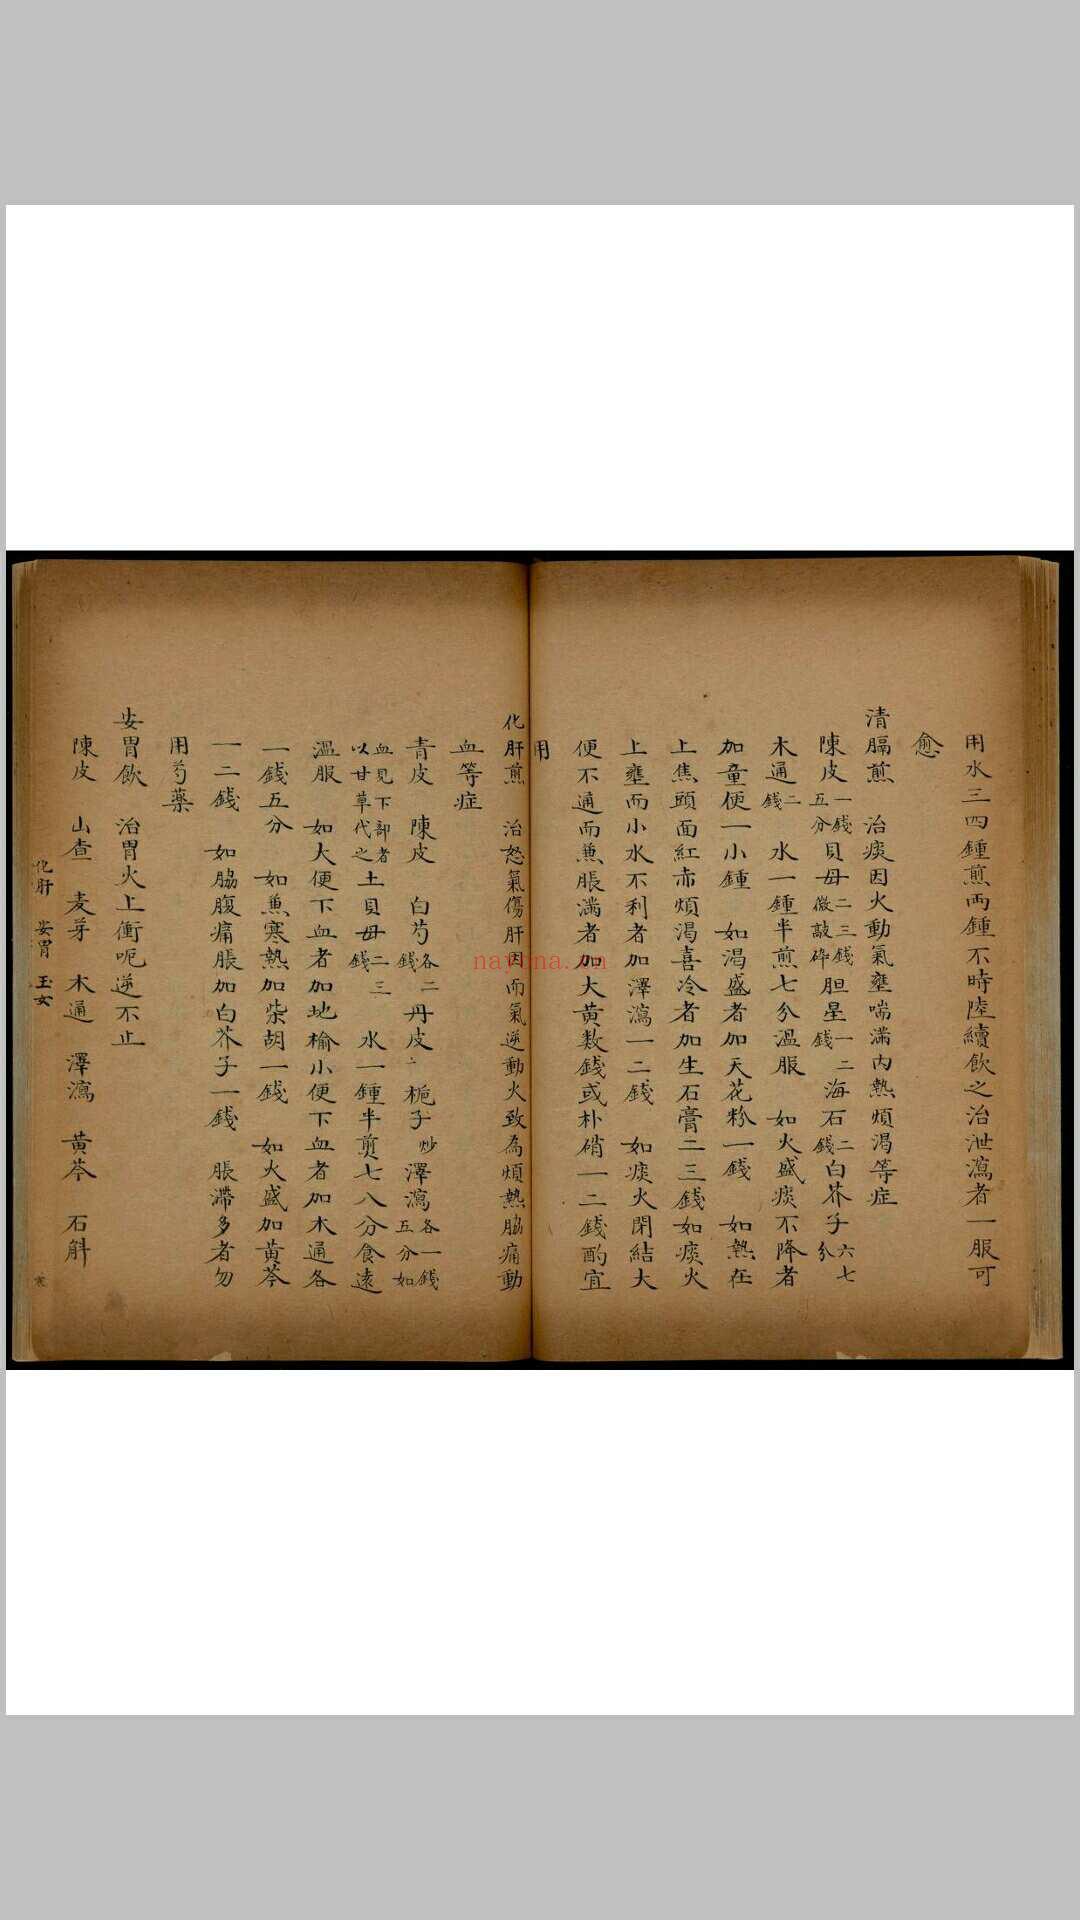 用水三四鍾煎兩鍾不時陸續飲之治泄瀉者一服可
愈
清膈煎　治痰因火動氣壅喘滿內熱煩渴等症
陳皮一錢五分貝母二三錢微敲碎胆星一二錢海石二錢白芥子六七分
木通二錢　水一鍾半煎七分溫服　如火盛痰不降者
加童便一小鍾　如渴盛者加天花粉一錢　如熱在
上焦頭面紅赤煩渴喜冷者加生石膏二三錢如痰火
上壅而小水不利者加澤瀉一二錢　如痰火閉結大
便不通而兼脹滿者加大黃数錢或朴硝一二錢酌宜
用
化肝煎　治怒氣傷肝因而氣逆動火致為煩熱脇痛動
血等症
青皮　陳皮　白芍各二錢丹皮　梔子炒澤瀉各一錢五分如
血見下部者以甘草代之土貝母二三錢　水一鍾半煎七八分食遠
溫服　如大便下血者加地榆小便下血者加木通各
一錢五分　如兼寒熱加柴胡一錢　如火盛加黃芩
一二錢　如脇腹痛脹加白芥子一錢　脹滯多者勿
用芍藥
安胃飲　治胃火上衝呃逆不止
陳皮　山查　麦芽　木通　澤瀉　黃芩　石斛
化肝　安胃　玉女
寒
nayona.cn